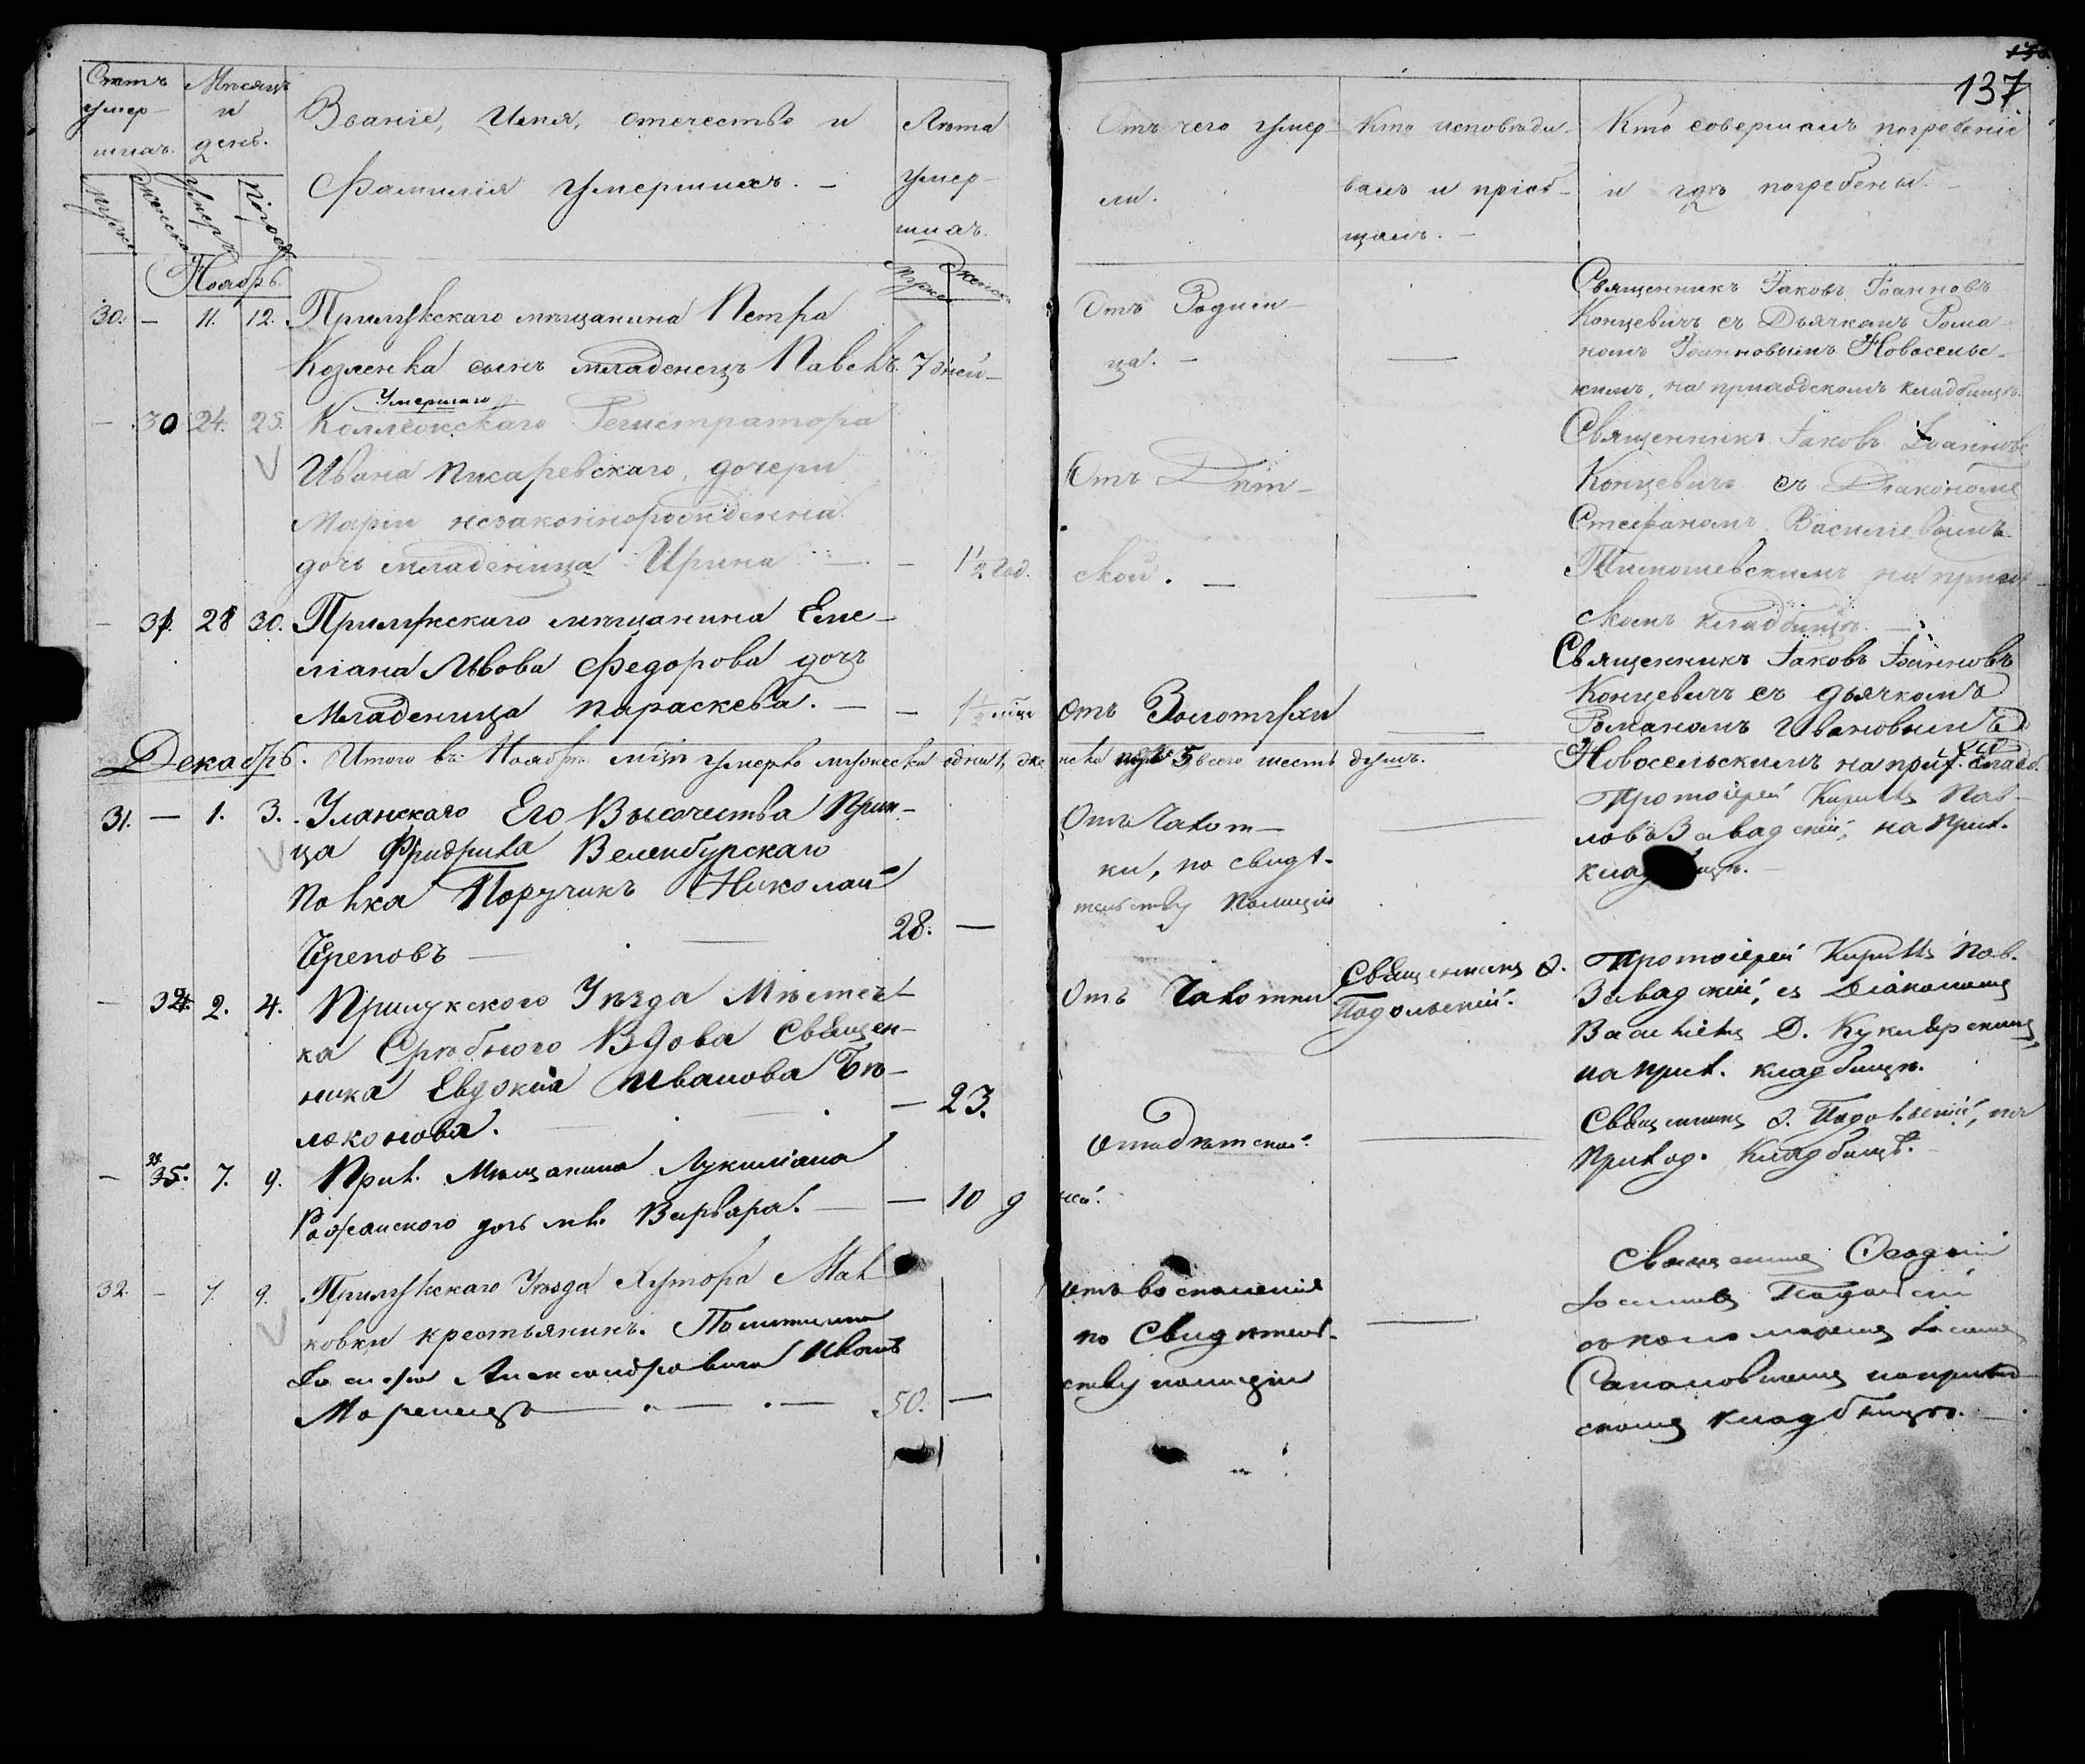 137
Счетъ умер-шихъ. Мѣсяцъ и день. Званіе, Имя, отечество и Фамилія умершихъ. — Лѣта умер-шихъ.
Отъ чего умер-ли. Кто исповѣды-валъ и пріоб-щалъ. — Кто совершалъ погребеніе и гдѣ погребены. —
Ноябрь.
30. — 11. 12. Прилукскаго мѣщанина Петра
Козленка сынъ младенецъ Павелъ. 7 дней —
Отъ Родим-
ца. — —
Священникъ Іаковъ Іоанновъ
Концевичъ съ Дьячкомъ Рома-
номъ Іоанновымъ Новосельс-
кимъ, на приходскомъ кладбищѣ.
— 30 24. 25. Умершаго
Коллежскаго Регистратора
Ивана Писаревскаго, дочери
Маріи незаконнорожденна
дочь младеница Ирина — — 1 1/2 год.
Отъ Дѣт-
ской. — —
Священникъ Іаковъ Іоанновъ
Концевичъ съ Діакономъ
Стефаномъ Василіевымъ
Тимошевскимъ на приход-
скомъ кладбищѣ. —
— 31. 28 30. Прилукскаго мѣщанина Еме-
ліана Львова Федорова дочь
Младеница Параскева. — —
отъ Золотухи —
Священникъ Іаковъ Іоанновъ
Концевичъ съ дьячкомъ
Романомъ Ивановымъ
Новосельскимъ на прих. кладб.
Декабрь. Итого въ Ноябрѣ мѣцѣ умерло мужеска одинъ 1, женска 5 всего шесть душъ.
31. — 1. 3. Уланскаго Его Высочества Прин-
ца Фридриха Веленбурскаго
Полка Поручикъ Николай
Череповъ — 28. —
Отъ Чахот-
ки, по свидѣ-
тельству Полиціи
Протоіерей Кириллъ Пав-
ловъ Завадскій, на прих.
кладбищѣ. —
— 32. 2. 4. Прилукского Уѣзда Мѣстеч-
ка Срѣбного Вдова Священ-
ника Евдокія Иванова Бѣ-
локонова. — 23.
Отъ Чахотки
Священникъ Ѳ.
Подольскій.
Протоіерей Кириллъ Пав.
Завадскій, съ Діакономъ
Василіемъ Д. Куклярскимъ,
на прих. кладбищѣ.
— 33. 35. 7. 9. Прил. Мѣщанина Лукиліана
Рожанского дочь мл. Варвара. — — 10 дней.
отъ дѣтской. —
Священникъ Ѳ. Подольскій, на
Приход. Кладбищѣ.
32. — 7. 9. Прилукскаго Уѣзда Хутора Мал
ковки крестьянинъ.
Александровича Иванъ
Моренецъ — 50. —
отъ воспаленія
по Свидѣтель-
ству полиціи —
Священникъ
Подольскій
на приход-
скомъ кладбищѣ. —